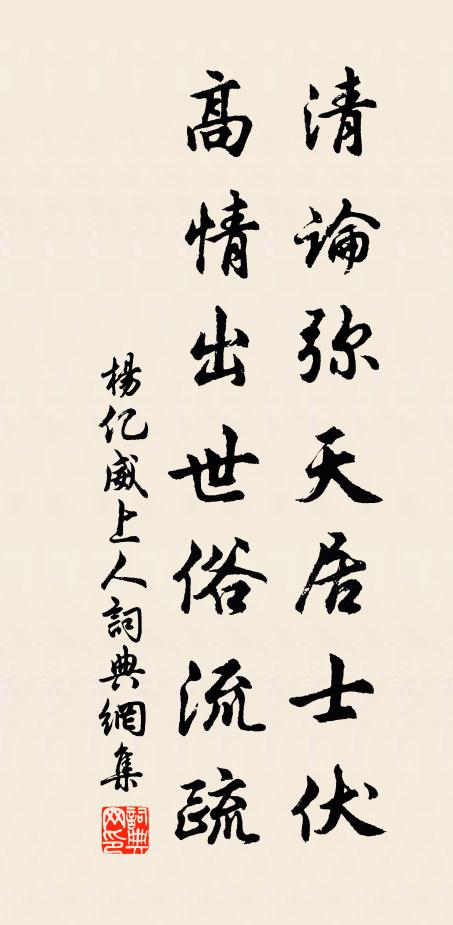 清論弥天居士伏
高情出世俗流疏
楊亿威上人詞典網集
詞典网印